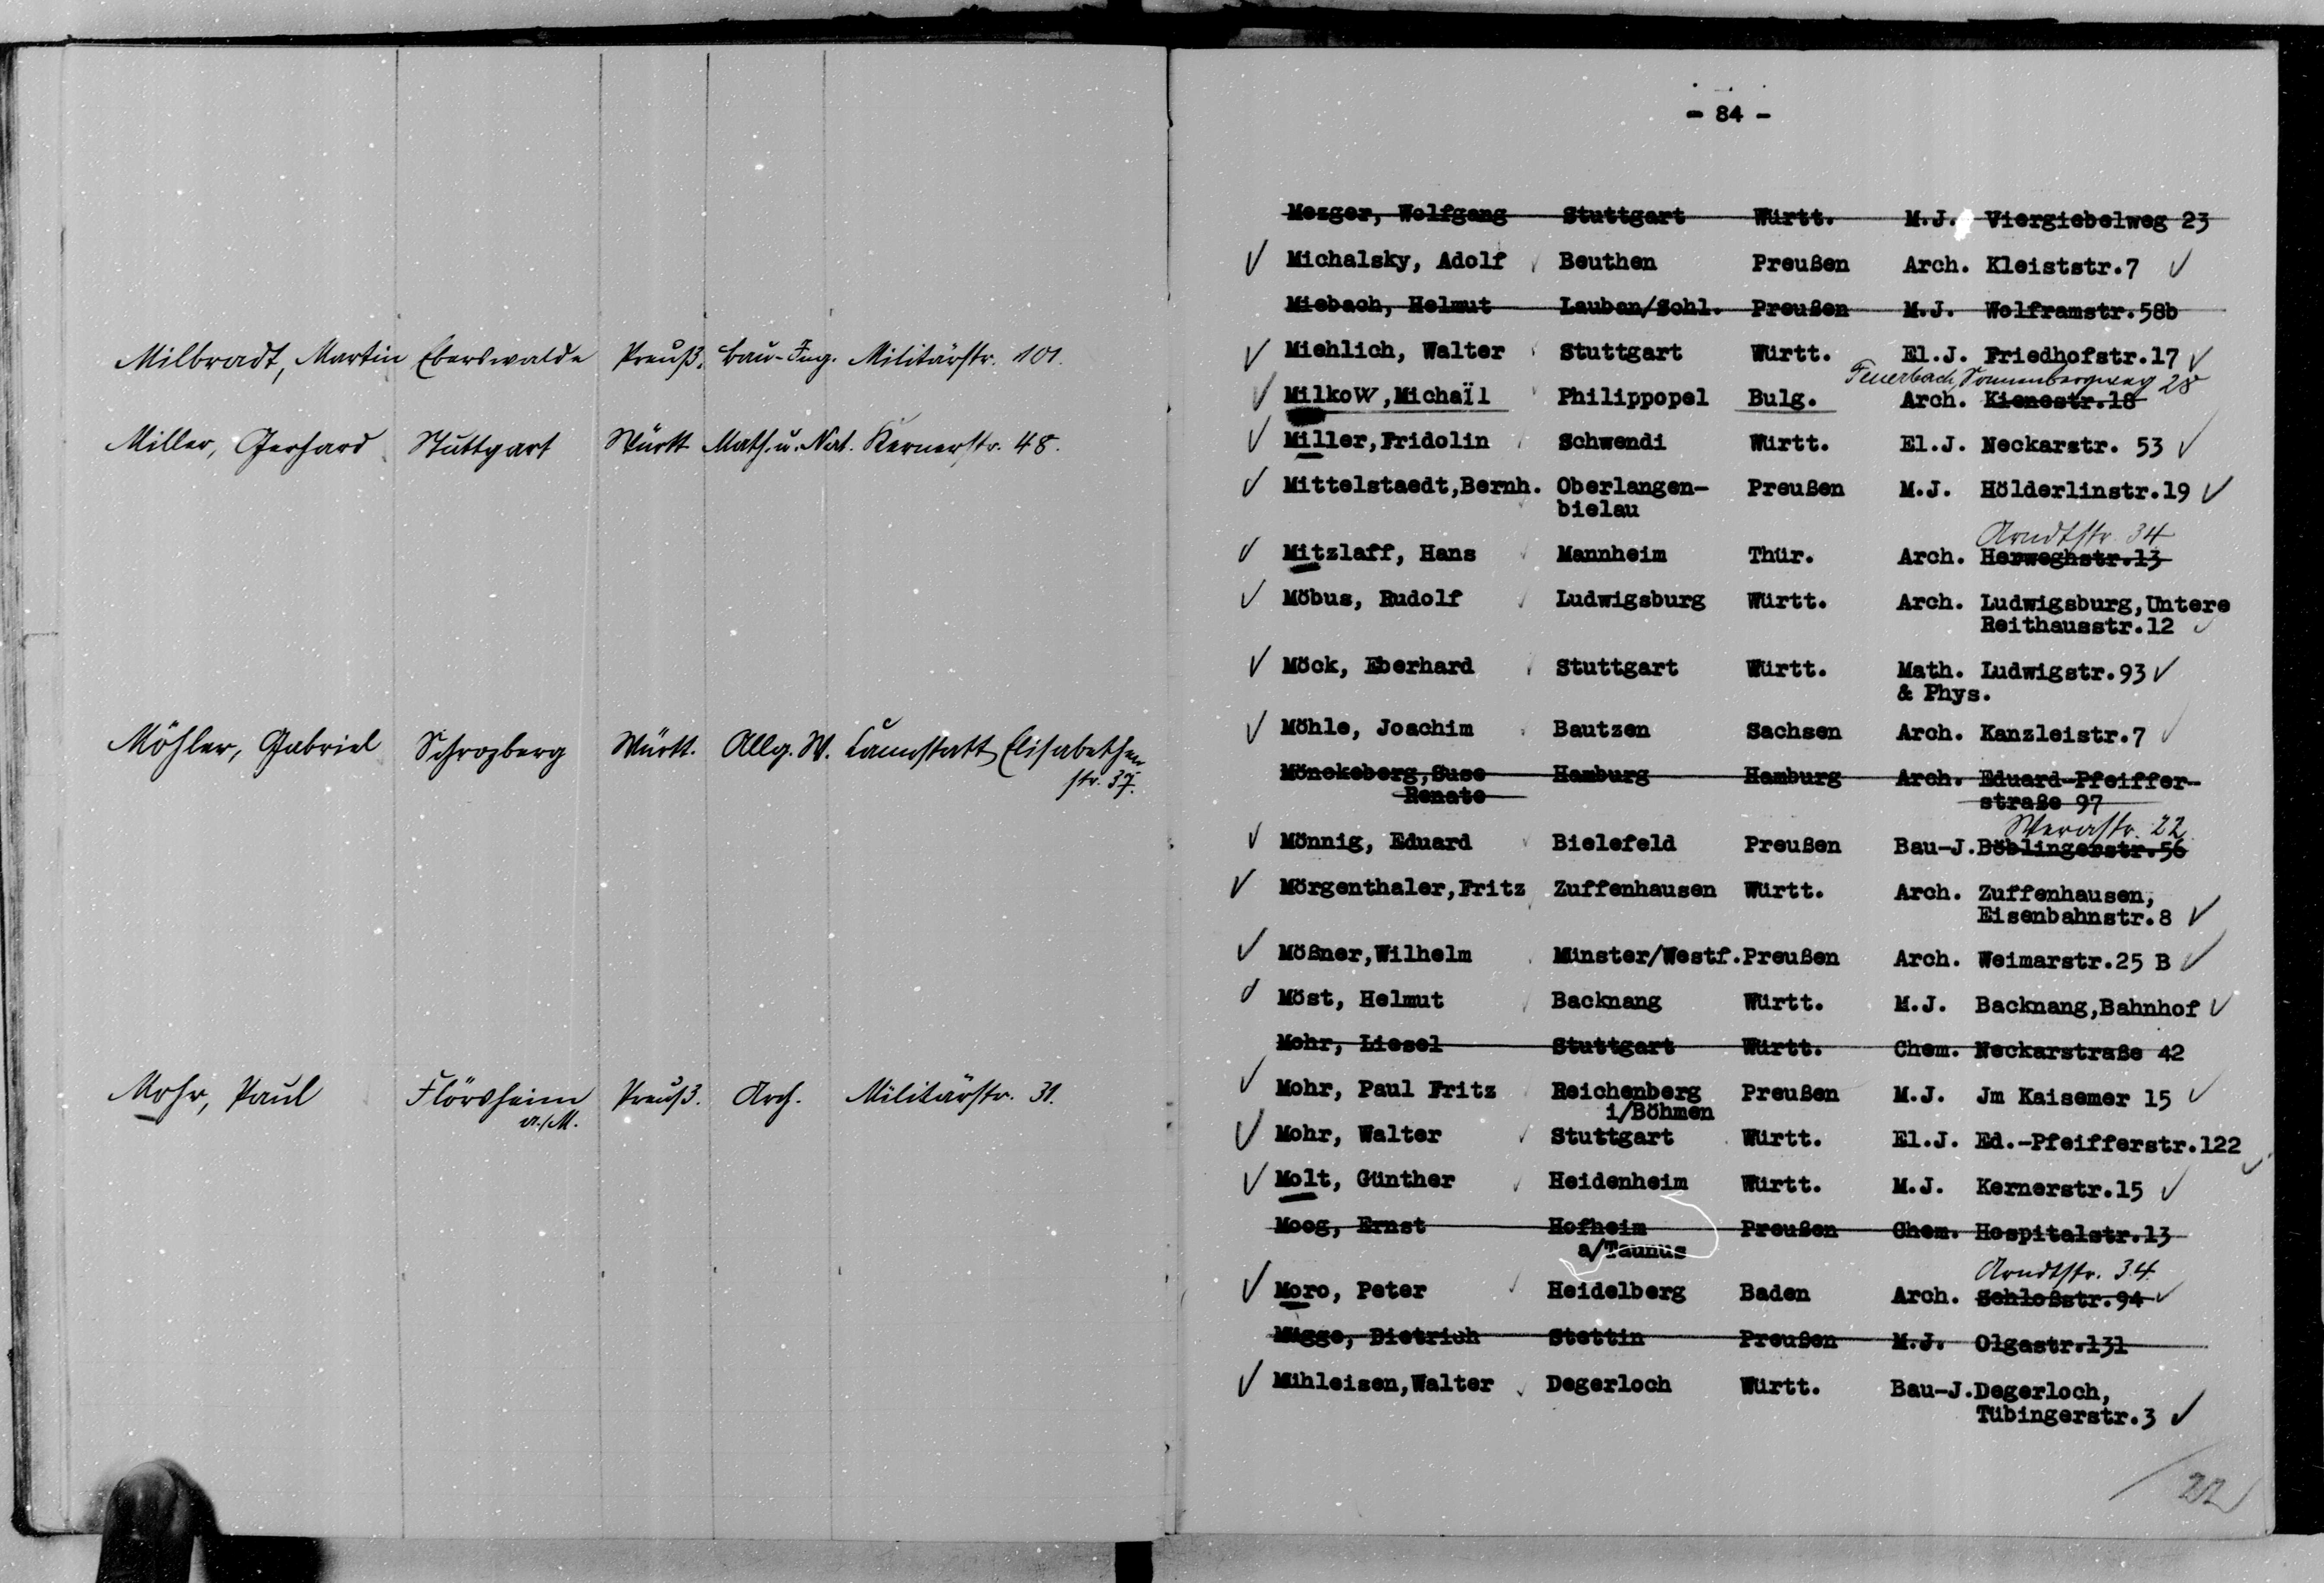 Milbradt, Martin Eberswalde Preuß. Bau-Ing. Militärstr. 101.
Miller, Gerhard Stuttgart Württ Math. u. Nat. Kernerstr. 48.
Möhler, Gabriel Schrozberg Württ. Allg. W. Cannstatt, Elisabethen
str. 37.
Mohr, Paul Flörsheim Preuß. Arch. Militärstr. 31.
a./M.
- 84 -
Mezger, Wolfgang Stuttgart Württ. M.J. Viergiebelweg 23
Michalsky, Adolf Beuthen Preußen Arch. Kleiststr.7
Miebach, Helmut Lauban/Schl. Preußen M.J. Wolframstr.58b
Miehlich, Walter Stuttgart Württ. El.J. Friedhofstr.17
Feuerbach, Sonnenbergweg 28
Milkow,Michaïl Philippopel Bulg. Arch. Kienestr.18
Miller,Fridolin Schwendi Württ. El.J. Neckarstr. 53
Mittelstaedt,Bernh. Oberlangen- Preußen M.J. Hölderlinstr.19
bielau
Arndtstr. 34
Mitzlaff, Hans Mannheim Thür. Arch. Herweghstr.13
Möbus, Rudolf Ludwigsburg Württ. Arch. Ludwigsburg,Untere
Reithausstr.12
Möck, Eberhard Stuttgart Württ. Math. Ludwigstr.93
& Phys.
Möhle, Joachim Bautzen Sachsen Arch. Kanzleistr.7
Mönckeberg,Suse Hamburg Hamburg Arch. Eduard-Pfeiffer-
Renate straße 97
Werastr. 22
Mönnig, Eduard Bielefeld Preußen Bau-J.Böblingerstr.56
Mörgenthaler,Fritz Zuffenhausen Württ. Arch. Zuffenhausen,
Eisenbahnstr.8
Mößner,Wilhelm Münster/Westf.Preußen Arch. Weimarstr.25 B
Möst, Helmut Backnang Württ. M.J. Backnang,Bahnhof
Mohr, Liesel Stuttgart Württ. Chem. Neckarstraße 42
Mohr, Paul Fritz Reichenberg Preußen M.J. Jm Kaisemer 15
i/Böhmen
Mohr, Walter Stuttgart Württ. El.J. Ed.-Pfeifferstr.122
Molt, Günther Heidenheim Württ. M.J. Kernerstr.15
Moog, Ernst Hofheim Preußen Chem. Hospitalstr.13
a/Taunus
Arndtstr. 34.
Moro, Peter Heidelberg Baden Arch. Schloßstr.94
Mügge, Dietrich Stettin Preußen M.J. Olgastr.131
Mühleisen,Walter Degerloch Württ. Bau-J.Degerloch,
Tübingerstr.3
22